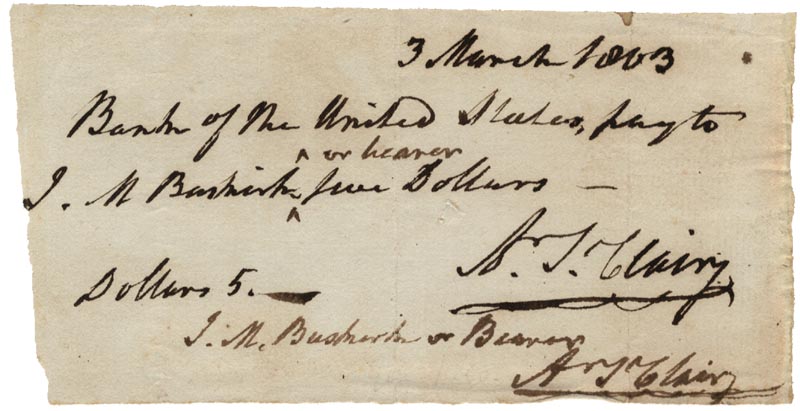 3 March 1803
Bank of the United States, pay to
^ or bearer
J. M Buskirk ^ five Dollars —
Ar. St. Clair
Dollars 5. —
J. M. Buskirk or Bearer
Ar St Clair